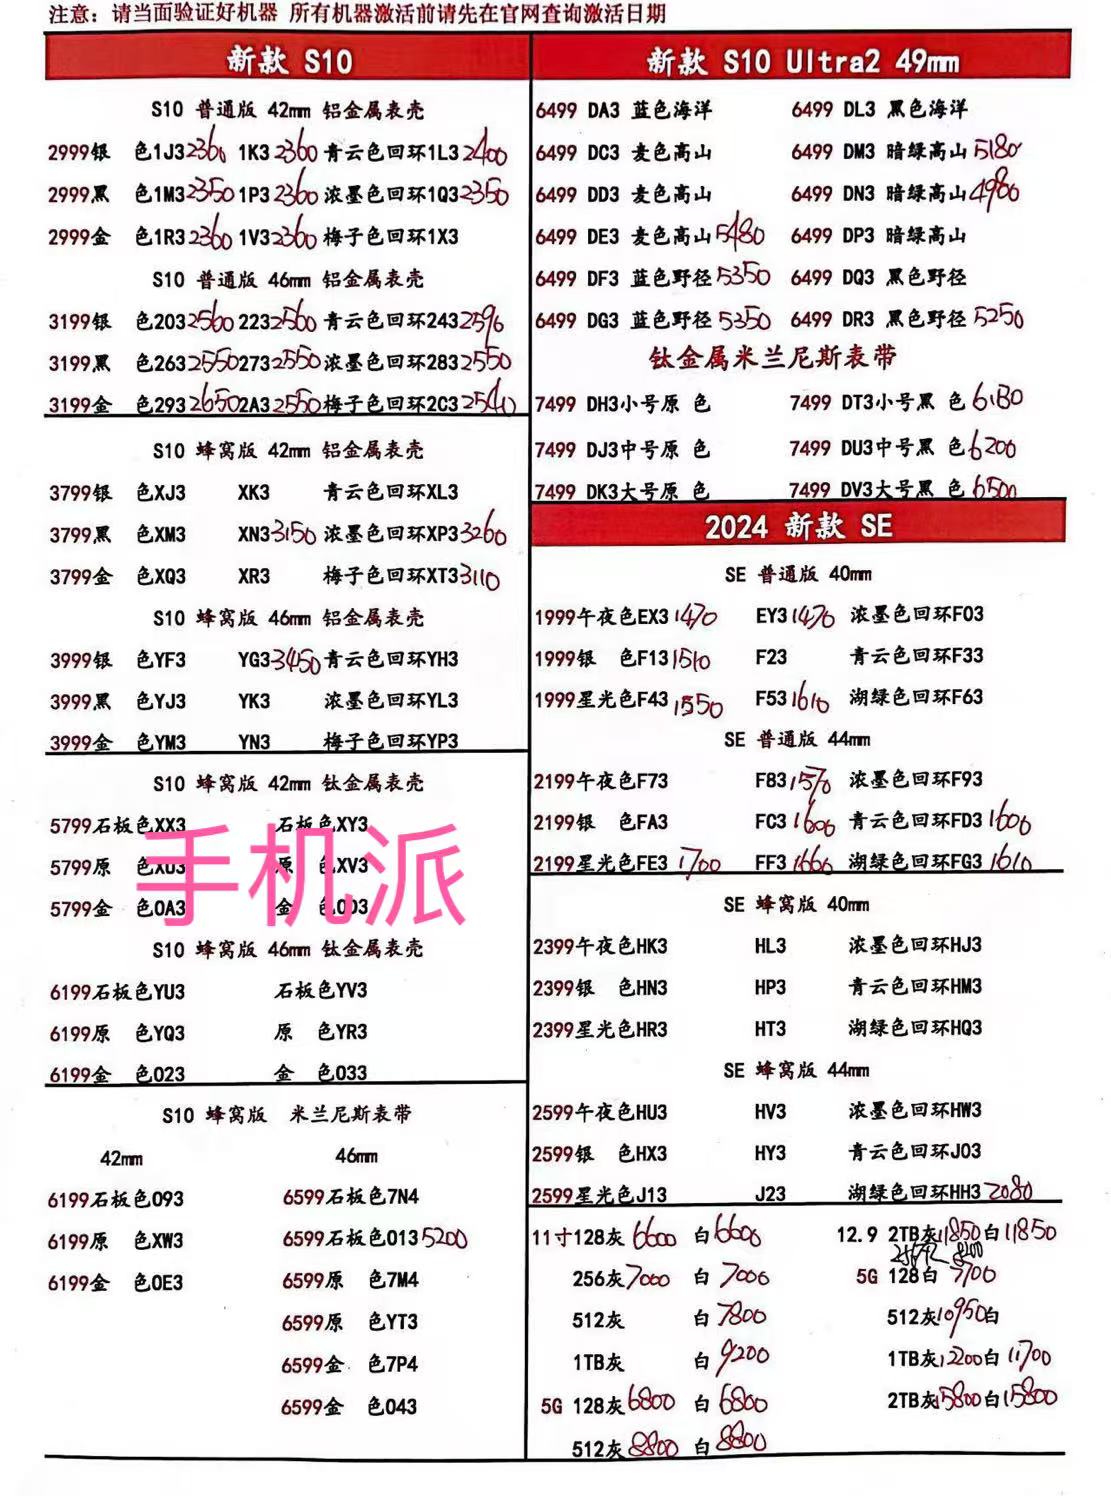 注意：请当面验证好机器 所有机器激活前请先在官网查询激活日期
新款 S10
S10 普通版 42mm 铝金属表壳
2999银 色1J3 2360 1K3 2360 青云色回环1L3 2400
2999黑 色1M3 2350 1P3 2360 浓墨色回环1Q3 2350
2999金 色1R3 2360 1V3 2360 梅子色回环1X3
S10 普通版 46mm 铝金属表壳
3199银 色203 2560 223 2560 青云色回环243 2596
3199黑 色263 2550 273 2550 浓墨色回环283 2550
3199金 色293 2650 2A3 2550 梅子色回环2C3 2540
S10 蜂窝版 42mm 铝金属表壳
3799银 色XJ3 XK3 青云色回环XL3
3799黑 色XM3 XN3 3150 浓墨色回环XP3 3260
3799金 色XQ3 XR3 梅子色回环XT3 3110
S10 蜂窝版 46mm 铝金属表壳
3999银 色YF3 YG3 3450 青云色回环YH3
3999黑 色YJ3 YK3 浓墨色回环YL3
3999金 色YM3 YN3 梅子色回环YP3
S10 蜂窝版 42mm 钛金属表壳
5799石板色XX3 石板色XY3
5799原 色XU3 原 色XV3
5799金 色0A3 金 色0D3
手机派
S10 蜂窝版 46mm 钛金属表壳
6199石板色YU3 石板色YV3
6199原 色YQ3 原 色YR3
6199金 色023 金 色033
S10 蜂窝版 米兰尼斯表带
42mm 46mm
6199石板色093 6599石板色7N4
6199原 色XW3 6599石板色013 5200
6199金 色0E3 6599原 色7M4
6599原 色YT3
6599金 色7P4
6599金 色043
新款 S10 Ultra2 49mm
6499 DA3 蓝色海洋 6499 DL3 黑色海洋
6499 DC3 麦色高山 6499 DM3 暗绿高山 5180
6499 DD3 麦色高山 6499 DN3 暗绿高山 4980
6499 DE3 麦色高山 5480 6499 DP3 暗绿高山
6499 DF3 蓝色野径 5350 6499 DQ3 黑色野径
6499 DG3 蓝色野径 5350 6499 DR3 黑色野径 5250
钛金属米兰尼斯表带
7499 DH3小号原 色 7499 DT3小号黑 色 6180
7499 DJ3中号原 色 7499 DU3中号黑 色 6200
7499 DK3大号原 色 7499 DV3大号黑 色 6500
2024 新款 SE
SE 普通版 40mm
1999午夜色EX3 1470 EY3 1470 浓墨色回环F03
1999银 色F13 1510 F23 青云色回环F33
1999星光色F43 1550 F53 1610 湖绿色回环F63
SE 普通版 44mm
2199午夜色F73 F83 1570 浓墨色回环F93
2199银 色FA3 FC3 1600 青云色回环FD3 1600
2199星光色FE3 1700 FF3 1660 湖绿色回环FG3 1610
SE 蜂窝版 40mm
2399午夜色HK3 HL3 浓墨色回环HJ3
2399银 色HN3 HP3 青云色回环HM3
2399星光色HR3 HT3 湖绿色回环HQ3
SE 蜂窝版 44mm
2599午夜色HU3 HV3 浓墨色回环HW3
2599银 色HX3 HY3 青云色回环J03
2599星光色J13 J23 湖绿色回环HH3 2080
11寸128灰 6600 白 6600 12.9 2TB灰11850白11850
8200
256灰7000 白 7000 5G 128白 7700
512灰 白 7800 512灰10950白
1TB灰 白 9200 1TB灰12200白 11700
5G 128灰6800 白 6800 2TB灰15800白15800
512灰8800 白 8800